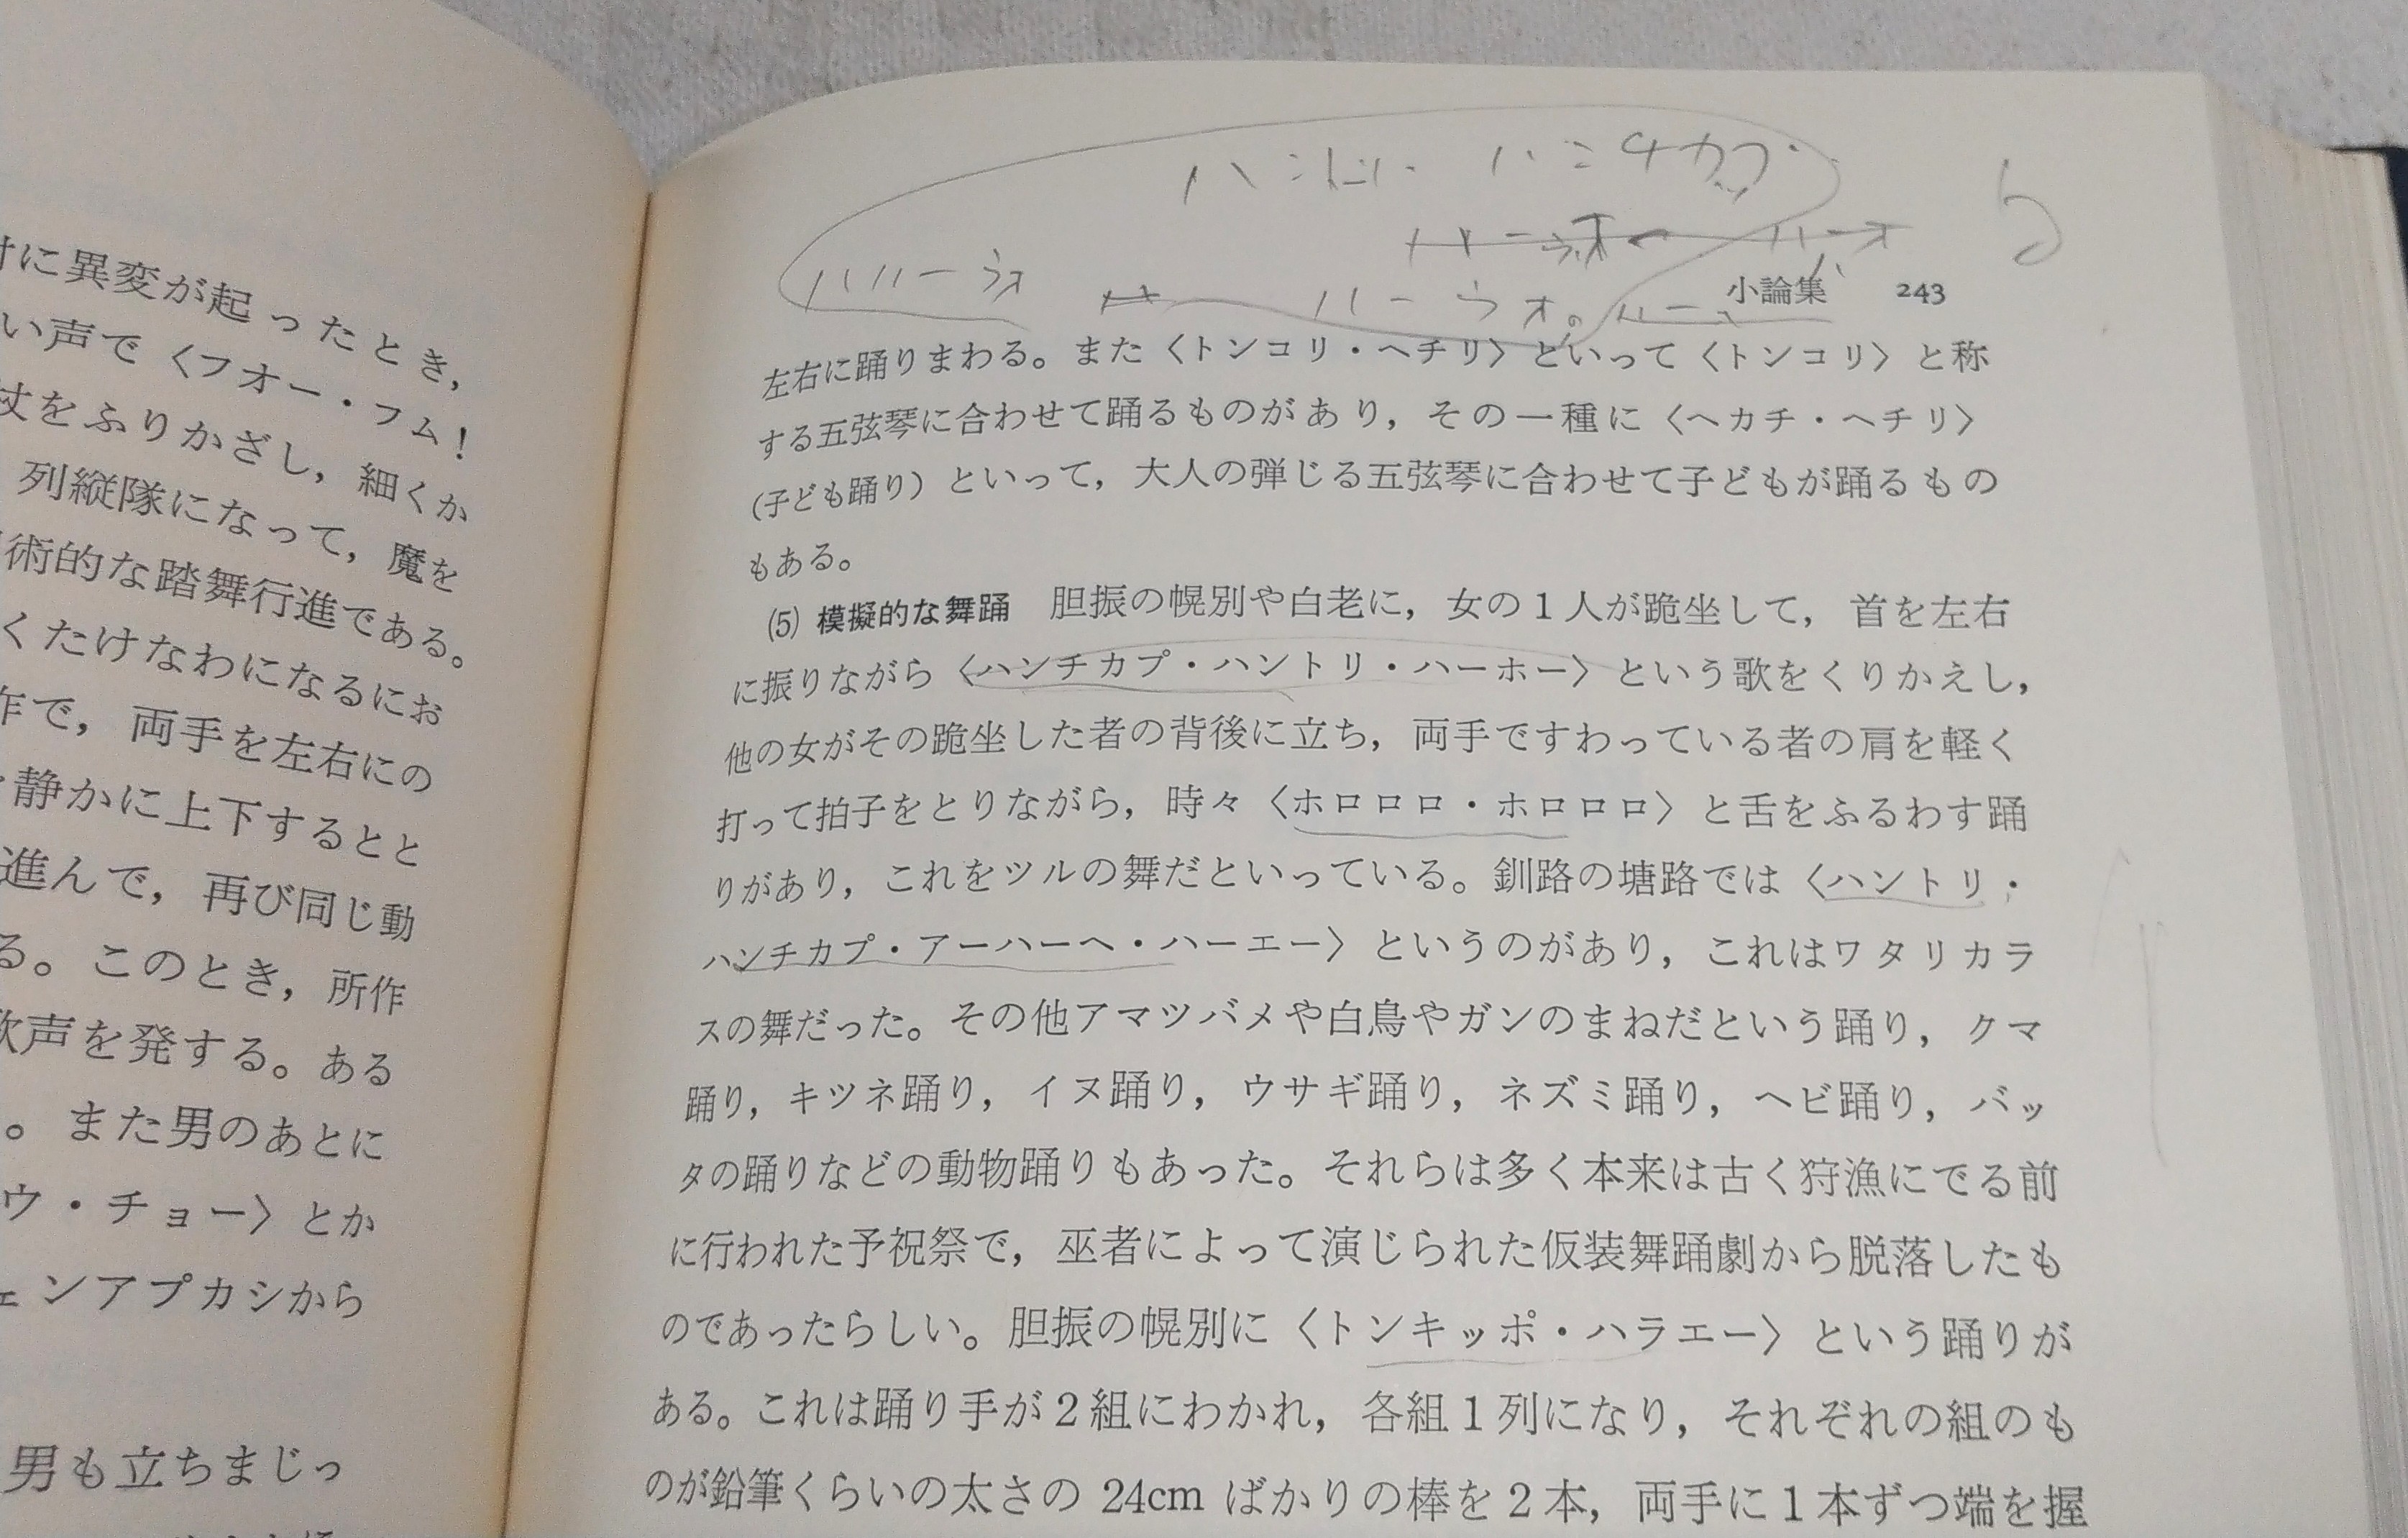 に異変が起ったとき,
い声で〈フオー・フム!
杖をふりかざし, 細くか
列縦隊になって, 魔を
術的な踏舞行進である。
くたけなわになるにお
作で, 両手を左右にの
静かに上下するとと
進んで, 再び同じ動
る。このとき, 所作
歌声を発する。ある
。また男のあとに
ウ・チョー〉とか
ェンアプカシから
男も立ちまじっ
ハンチカプ
ハーウォ。
小論集 243
左右に踊りまわる。また〈トンコリ・ヘチリ〉といって〈トンコリ〉と称
する五弦琴に合わせて踊るものがあり, その一種に〈ヘカチ・ヘチリ〉
(子ども踊り) といって, 大人の弾じる五弦琴に合わせて子どもが踊るもの
もある。
(5) 模擬的な舞踊 胆振の幌別や白老に, 女の1人が跪坐して, 首を左右
に振りながら〈ハンチカプ・ハントリ・ハーホー〉という歌をくりかえし,
他の女がその跪坐した者の背後に立ち, 両手ですわっている者の肩を軽く
打って拍子をとりながら, 時々〈ホロロロ・ホロロロ〉と舌をふるわす踊
りがあり, これをツルの舞だといっている。釧路の塘路では〈ハントリ・
ハンチカプ・アーハーヘ・ハーエー〉というのがあり, これはワタリカラ
スの舞だった。その他アマツバメや白鳥やガンのまねだという踊り, クマ
踊り, キツネ踊り, イヌ踊り, ウサギ踊り, ネズミ踊り, ヘビ踊り, バッ
タの踊りなどの動物踊りもあった。それらは多く本来は古く狩漁にでる前
に行われた予祝祭で, 巫者によって演じられた仮装舞踊劇から脱落したも
のであったらしい。胆振の幌別に〈トンキッポ・ハラエー〉という踊りが
ある。これは踊り手が2組にわかれ, 各組1列になり, それぞれの組のも
のが鉛筆くらいの太さの 24cm ばかりの棒を2本, 両手に1本ずつ端を握